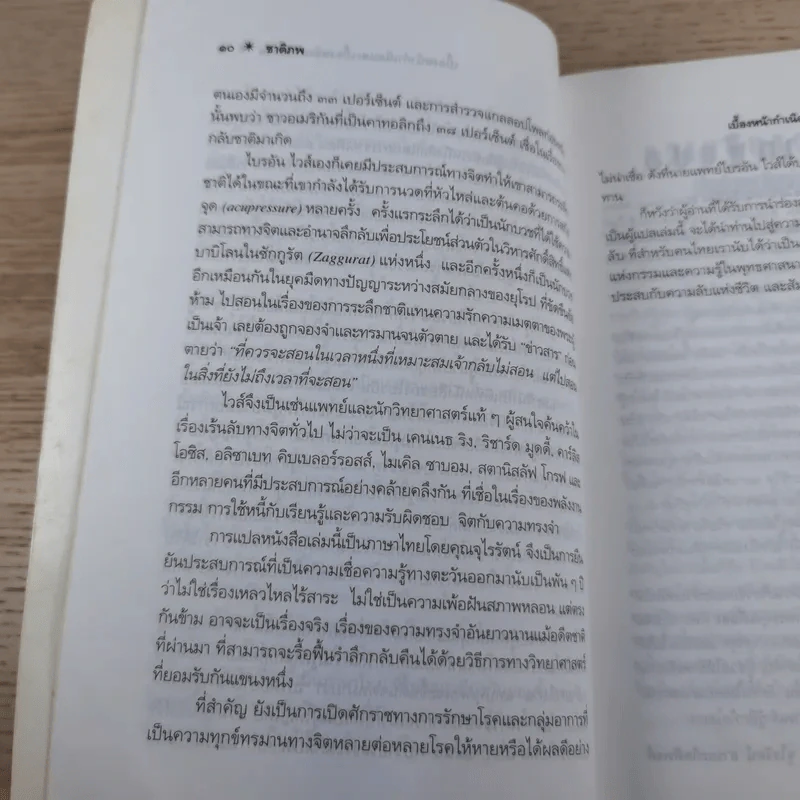 ๑๐ ☀ ชาติภพ
ตนเองมีจำนวนถึง ๓๓ เปอร์เซ็นต์ และการสำรวจแกลลอปโพล
นั้นพบว่า ชาวอเมริกันที่เป็นคาทอลิกถึง ๓๘ เปอร์เซ็นต์ เชื่อใน
กลับชาติมาเกิด
ไบรอัน ไวส์เองก็เคยมีประสบการณ์ทางจิตทำให้เขาสามารถ
ชาติได้ในขณะที่เขากำลังได้รับการนวดที่หัวไหล่และต้นคอด้วยการ
จุด (acupressure) หลายครั้ง ครั้งแรกระลึกได้ว่าเป็นนักบวชที่ได้ใช้
สามารถทางจิตและอำนาจลึกลับเพื่อประโยชน์ส่วนตัวในวิหารศักดิ์สิทธิ์
บาบิโลนในซักกูรัต (Zaggurat) แห่งหนึ่ง และอีกครั้งหนึ่งก็เป็นนักบวช
อีกเหมือนกันในยุคมืดทางปัญญาระหว่างสมัยกลางของยุโรป ที่ขัดขืน
ห้าม ไปสอนในเรื่องของการระลึกชาติแทนความรักความเมตตาของพระผู้
เป็นเจ้า เลยต้องถูกจองจำและทรมานจนตัวตาย และได้รับ “ข่าวสาร” ก่อน
ตายว่า “ที่ควรจะสอนในเวลาหนึ่งที่เหมาะสมเจ้ากลับไม่สอน แต่ไปสอน
ในสิ่งที่ยังไม่ถึงเวลาที่จะสอน”
ไวส์จึงเป็นเช่นแพทย์และนักวิทยาศาสตร์แท้ ๆ ผู้สนใจค้นคว้าใน
เรื่องเร้นลับทางจิตทั่วไป ไม่ว่าจะเป็น เคนเนธ ริง, ริชาร์ด มูดดี้, คาร์ลิส
โอซิส, อลิซาเบท คิบเบลอร์รอสส์, ไมเคิล ซาบอม, สตานิสลัฟ โกรฟ และ
อีกหลายคนที่มีประสบการณ์อย่างคล้ายคลึงกัน ที่เชื่อในเรื่องของพลังงาน
กรรม การใช้หนี้กับเรียนรู้และความรับผิดชอบ จิตกับความทรงจำ
การแปลหนังสือเล่มนี้เป็นภาษาไทยโดยคุณจุไรรัตน์ จึงเป็นการยืน
ยันประสบการณ์ที่เป็นความเชื่อความรู้ทางตะวันออกมานับเป็นพัน ๆ ปี
ว่าไม่ใช่เรื่องเหลวไหลไร้สาระ ไม่ใช่เป็นความเพ้อฝันสภาพหลอน แต่ตรง
กันข้าม อาจจะเป็นเรื่องจริง เรื่องของความทรงจำอันยาวนานแม้อดีตชาติ
ที่ผ่านมา ที่สามารถจะรื้อฟื้นรำลึกกลับคืนได้ด้วยวิธีการทางวิทยาศาสตร์
ที่ยอมรับกันแขนงหนึ่ง
ที่สำคัญ ยังเป็นการเปิดศักราชทางการรักษาโรคและกลุ่มอาการที่
เป็นความทุกข์ทรมานทางจิตหลายต่อหลายโรคให้หายหรือได้ผลดีอย่าง
เบื้องหน้ากำเนิด
ไม่น่าเชื่อ ดังที่นายแพทย์ไบรอัน ไวส์ได้
ทาน
ก็หวังว่าผู้อ่านที่ได้รับการนำร่อง
เป็นผู้แปลเล่มนี้ จะได้นำท่านไปสู่ความ
ลับ ที่สำหรับคนไทยเรานับได้ว่าเป็น
แห่งกรรมและความรู้ในพุทธศาสนา
ประสบกับความลับแห่งชีวิต และ